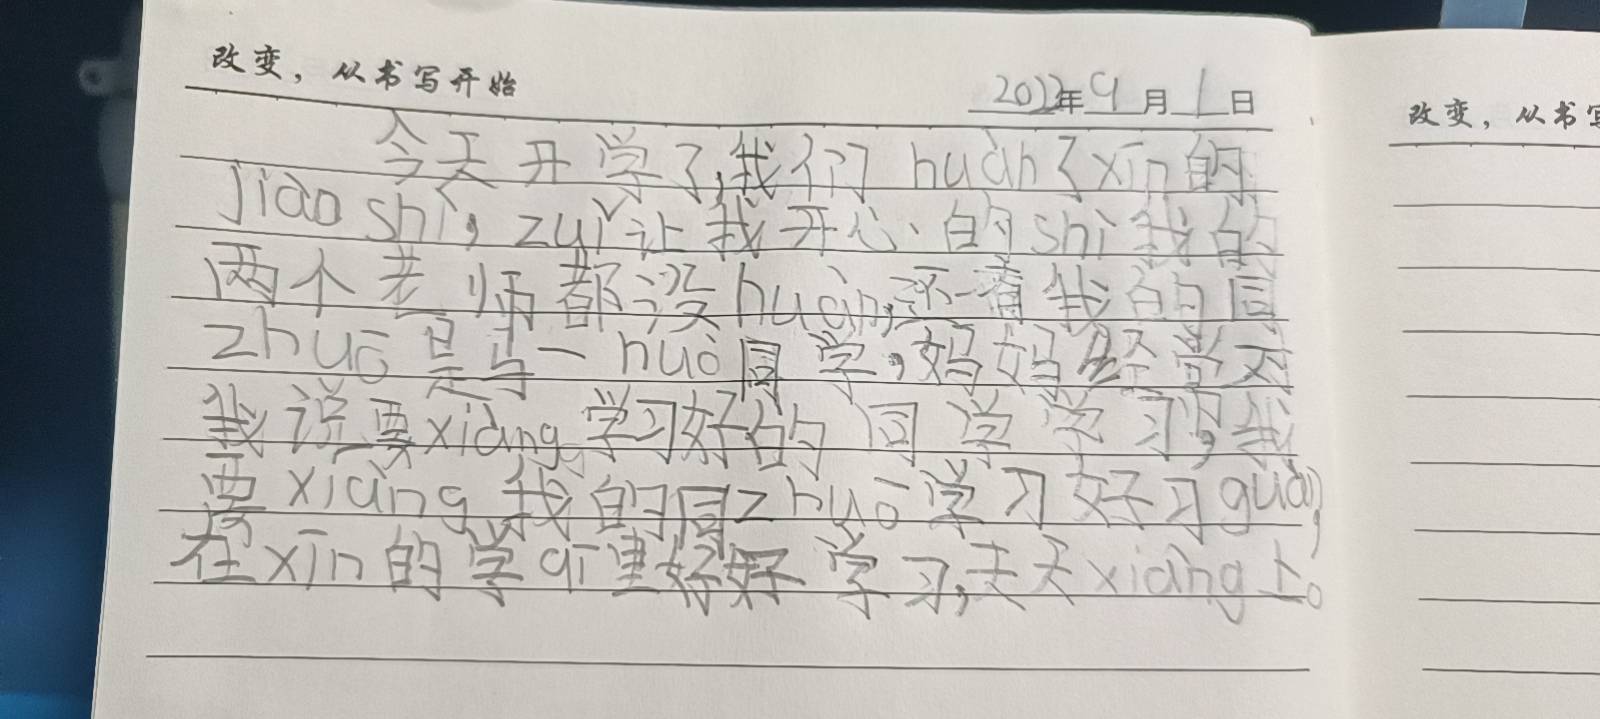 改变，从书写开始
2022年9月1日
今天开学了,我们huàn了xīn的
jiào shì，zuì让我开心的shì我的
两个老师都没huàn,还有我的同
zhuō是马一huò同学,妈妈经常对
我说要xiàng学习好的同学学习,我
要xiàng我的同zhuō学习好习guàn,
在xīn的学qī里好好学习,天天xiàng上。
改变，从书写